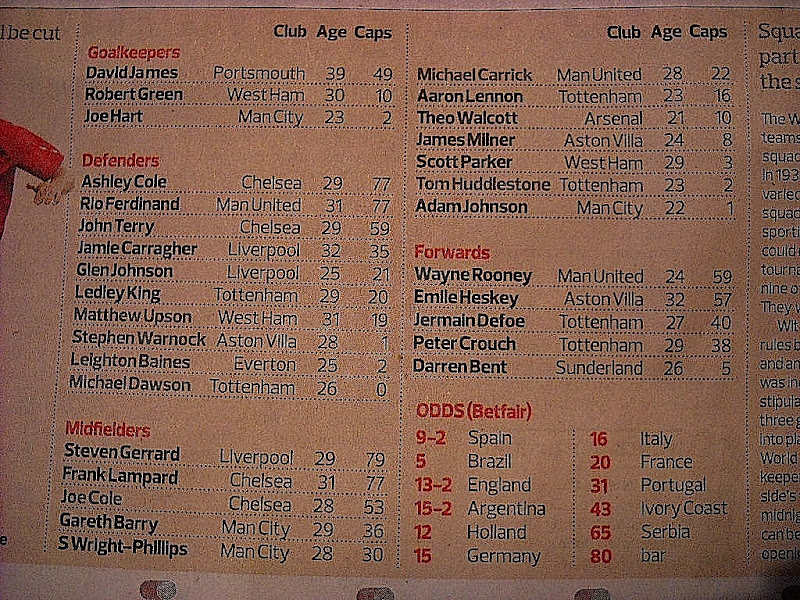 l be cut
Club Age Caps
Goalkeepers
David James Portsmouth 39 49
Robert Green West Ham 30 10
Joe Hart Man City 23 2
Defenders
Ashley Cole Chelsea 29 77
Rio Ferdinand Man United 31 77
John Terry Chelsea 29 59
Jamie Carragher Liverpool 32 35
Glen Johnson Liverpool 25 21
Ledley King Tottenham 29 20
Matthew Upson West Ham 31 19
Stephen Warnock Aston Villa 28 1
Leighton Baines Everton 25 2
Michael Dawson Tottenham 26 0
Midfielders
Steven Gerrard Liverpool 29 79
Frank Lampard Chelsea 31 77
Joe Cole Chelsea 28 53
Gareth Barry Man City 29 36
S Wright-Phillips Man City 28 30
Club Age Caps
Michael Carrick Man United 28 22
Aaron Lennon Tottenham 23 16
Theo Walcott Arsenal 21 10
James Milner Aston Villa 24 8
Scott Parker West Ham 29 3
Tom Huddlestone Tottenham 23 2
Adam Johnson Man City 22 1
Forwards
Wayne Rooney Man United 24 59
Emile Heskey Aston Villa 32 57
Jermain Defoe Tottenham 27 40
Peter Crouch Tottenham 29 38
Darren Bent Sunderland 26 5
ODDS (Betfair)
9-2 Spain
5 Brazil
13-2 England
15-2 Argentina
12 Holland
15 Germany
16 Italy
20 France
31 Portugal
43 Ivory Coast
65 Serbia
80 bar
Squa
part
the s
The W
teams
squad
In 193
varied
squad
sporti
could
tourna
nine o
They
Wit
rules b
and an
was in
stipula
three g
into pl
World
keepe
side's
midnig
can be
openi